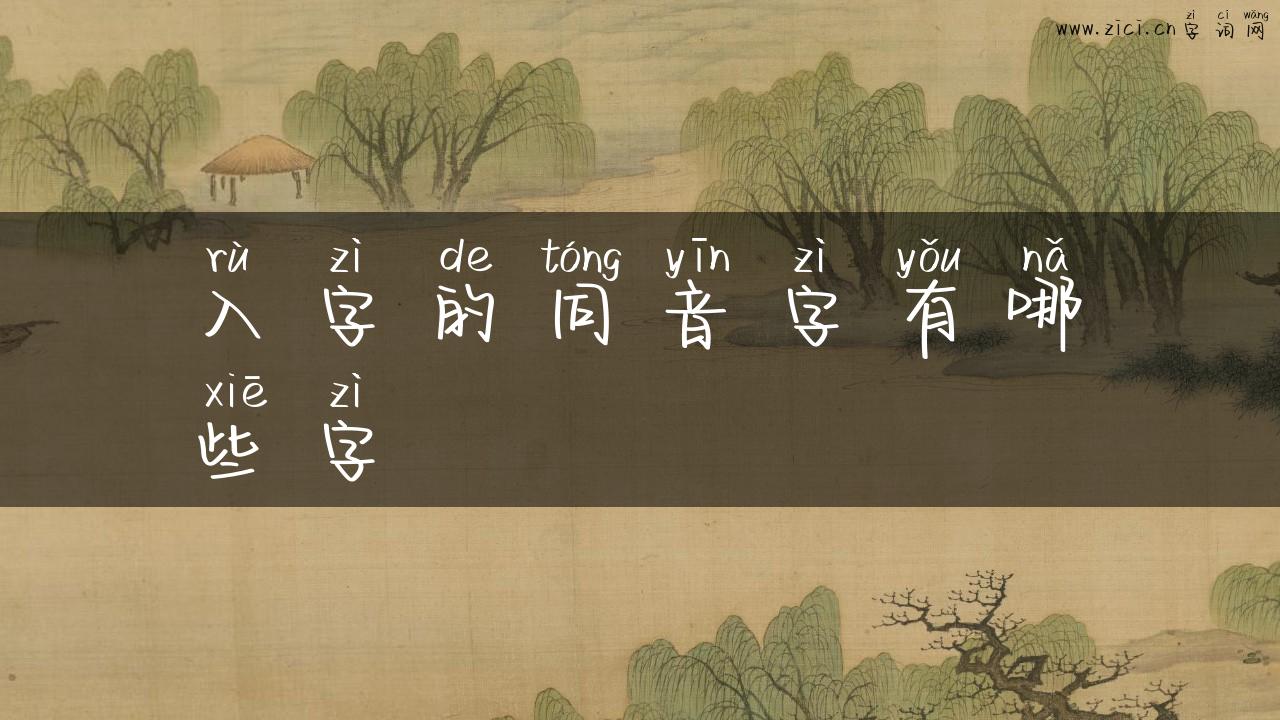 zì cí wǎng
www.zici.cn 字词网
rù zì de tóng yīn zì yǒu nǎ
入字的同音字有哪
xiē zì
些字